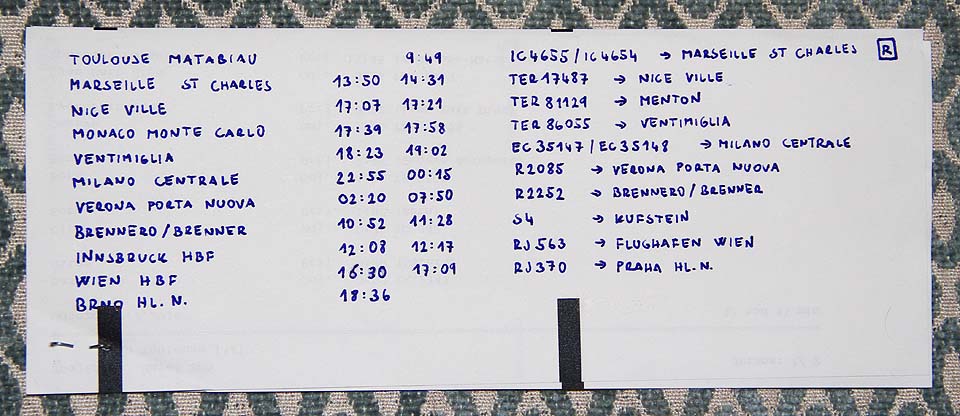 TOULOUSE MATABIAU 9:49 IC4655/IC4654 → MARSEILLE ST CHARLES R
MARSEILLE ST CHARLES 13:50 14:31 TER17487 → NICE VILLE
NICE VILLE 17:07 17:21 TER 81129 → MENTON
MONACO MONTE CARLO 17:39 17:58 TER 86055 → VENTIMIGLIA
VENTIMIGLIA 18:23 19:02 EC35147/EC35148 → MILANO CENTRALE
MILANO CENTRALE 22:55 00:15 R2085 → VERONA PORTA NUOVA
VERONA PORTA NUOVA 02:20 07:50 R2252 → BRENNERO/BRENNER
BRENNERO/BRENNER 10:52 11:28 S4 → KUFSTEIN
INNSBRUCK HBF 12:08 12:17 RJ563 → FLUGHAFEN WIEN
WIEN HBF 16:30 17:09 RJ370 → PRAHA HL.N.
BRNO HL.N. 18:36